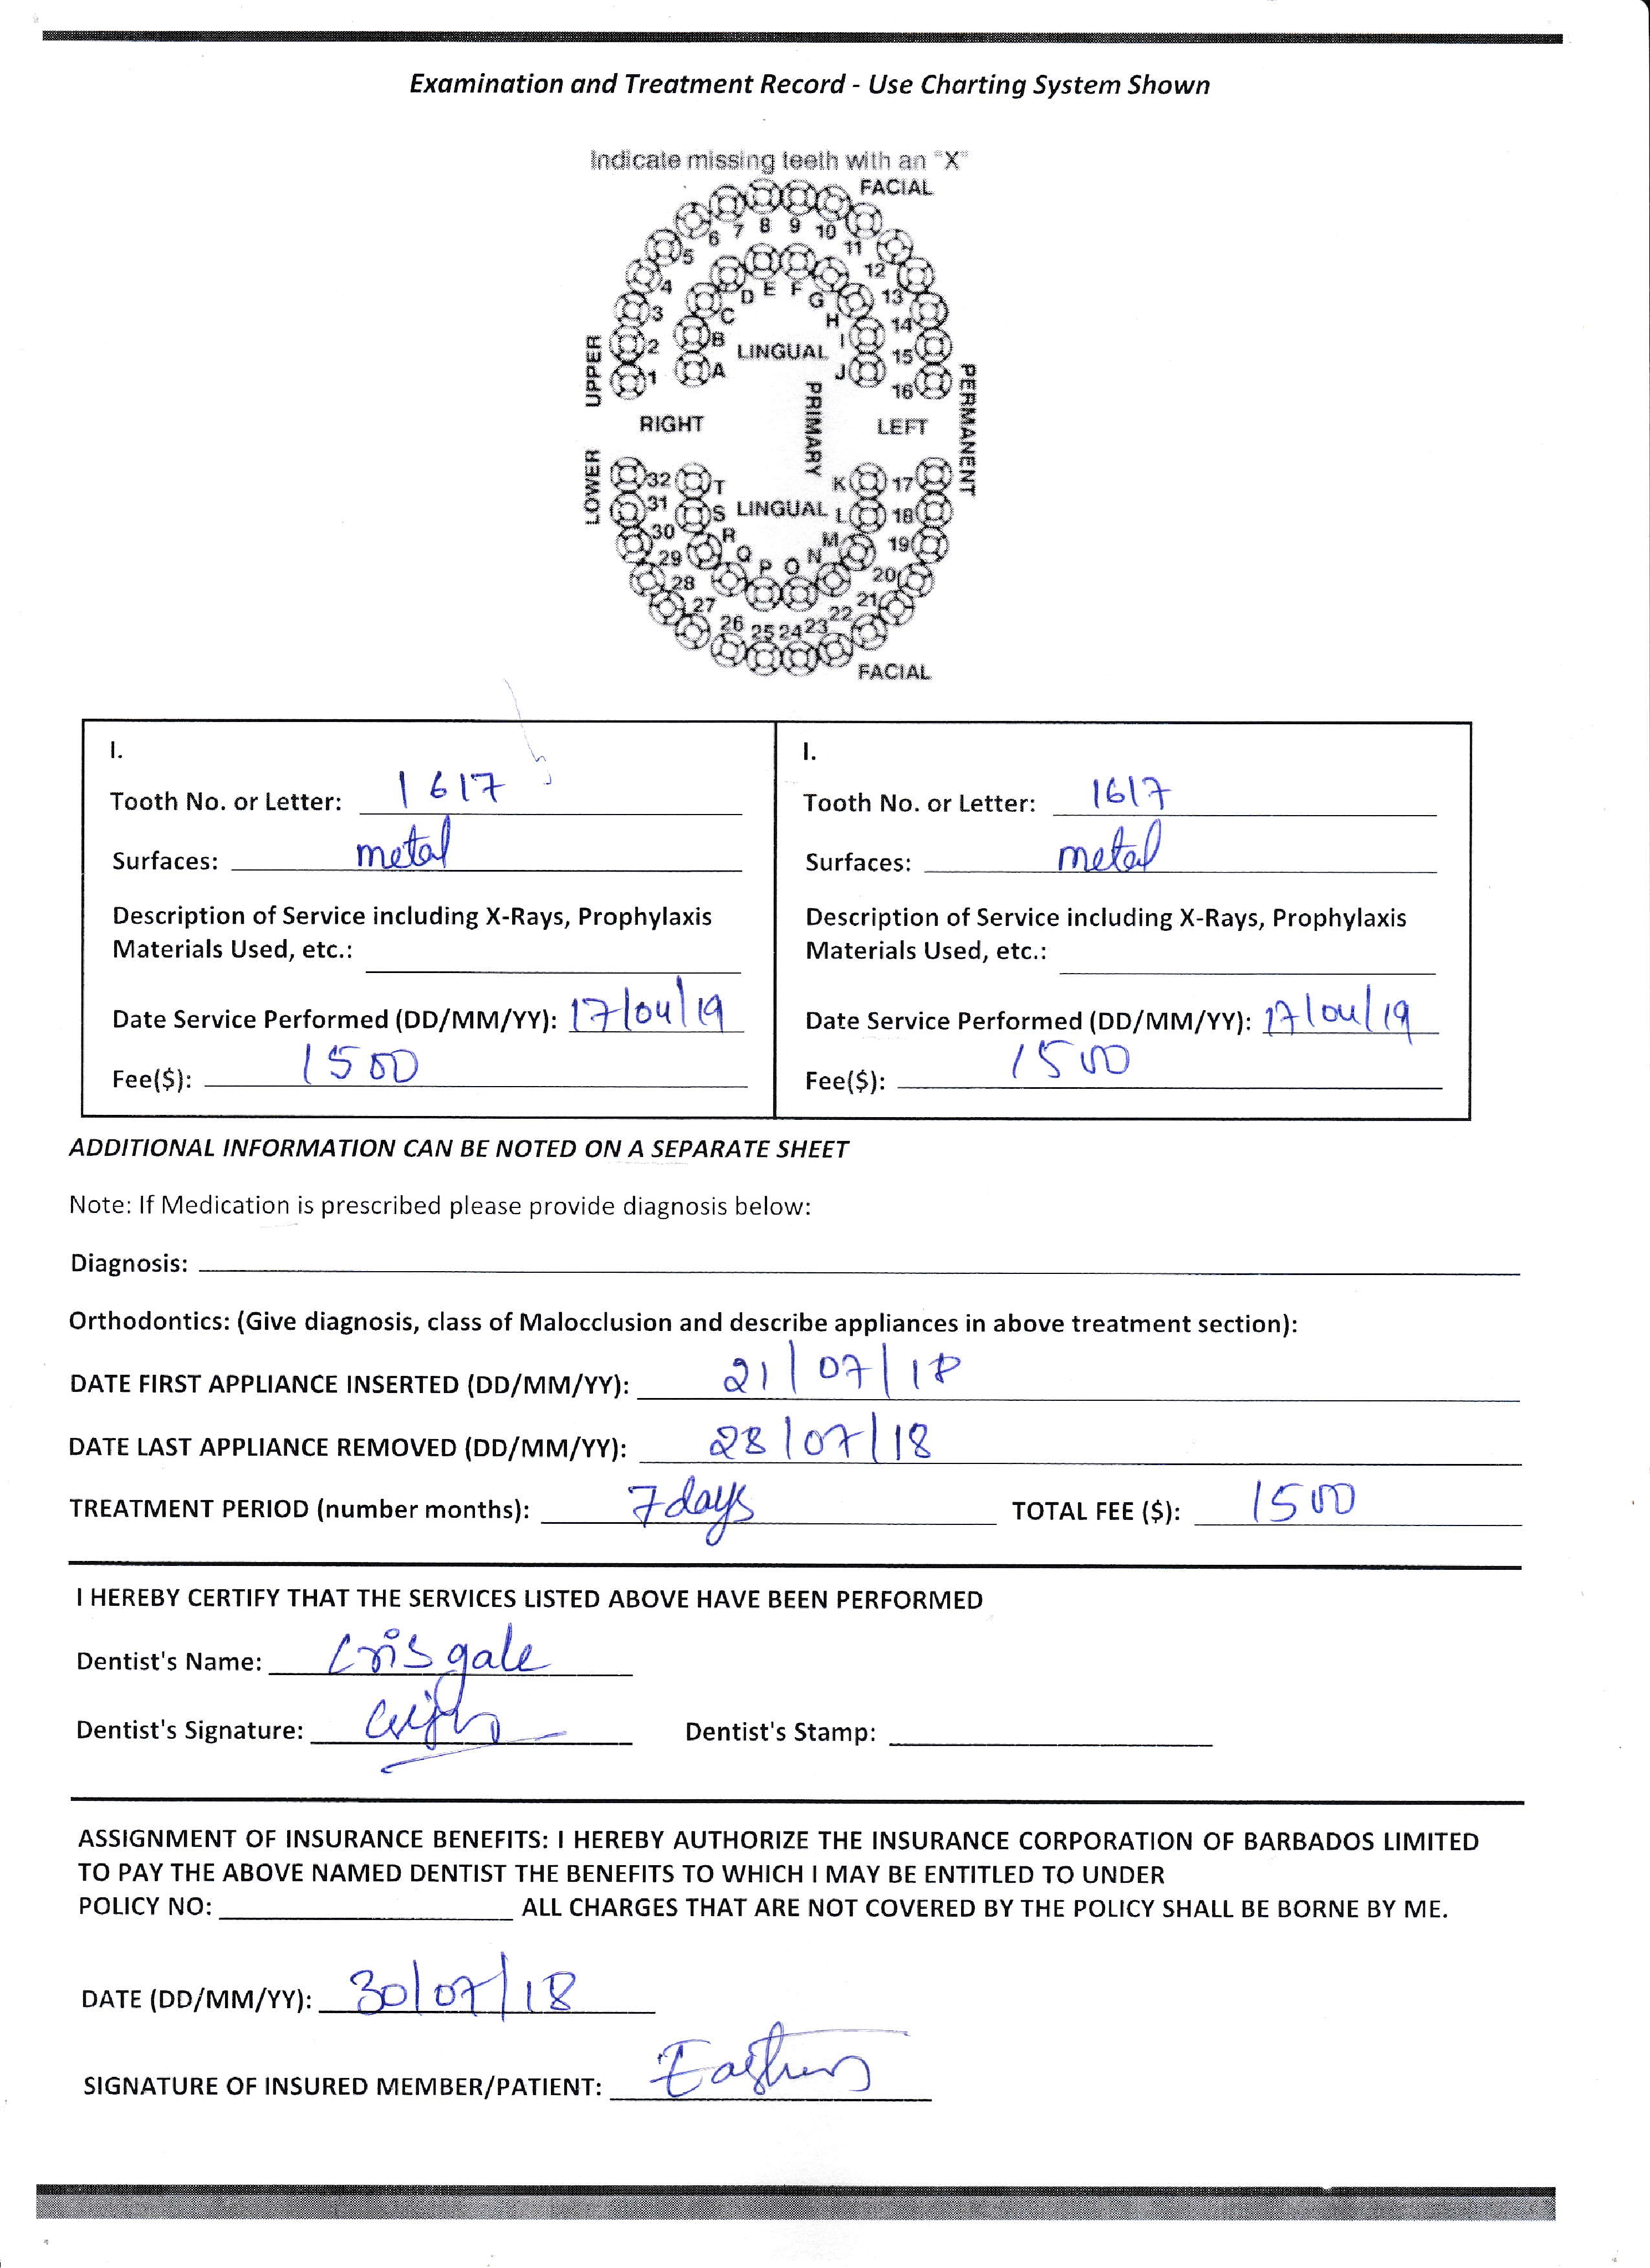 Examination and Treatment Record - Use Charting System Shown
Indicate missing teeth with an "X"
FACIAL
6 7 8 9 10
5 11
4 12
3 D E F G 13
C H 14
2 B LINGUAL I 15
1 A J 16
UPPER
PRIMARY
PERMANENT
RIGHT LEFT
LOWER
32 T K 17
31 S LINGUAL L 18
30 R M 19
29 Q P O N 20
28 21
27 22
26 25 24 23
FACIAL
I.
Tooth No. or Letter: 1617
Surfaces: metal
Description of Service including X-Rays, Prophylaxis
Materials Used, etc.:
Date Service Performed (DD/MM/YY): 17/04/19
Fee($): 1500
I.
Tooth No. or Letter: 1617
Surfaces: metal
Description of Service including X-Rays, Prophylaxis
Materials Used, etc.:
Date Service Performed (DD/MM/YY): 17/04/19
Fee($): 1500
ADDITIONAL INFORMATION CAN BE NOTED ON A SEPARATE SHEET
Note: If Medication is prescribed please provide diagnosis below:
Diagnosis:
Orthodontics: (Give diagnosis, class of Malocclusion and describe appliances in above treatment section):
DATE FIRST APPLIANCE INSERTED (DD/MM/YY): 21/07/18
DATE LAST APPLIANCE REMOVED (DD/MM/YY): 28/07/18
TREATMENT PERIOD (number months): 7days TOTAL FEE ($): 1500
I HEREBY CERTIFY THAT THE SERVICES LISTED ABOVE HAVE BEEN PERFORMED
Dentist's Name: Cris gale
Dentist's Signature: Dentist's Stamp:
ASSIGNMENT OF INSURANCE BENEFITS: I HEREBY AUTHORIZE THE INSURANCE CORPORATION OF BARBADOS LIMITED
TO PAY THE ABOVE NAMED DENTIST THE BENEFITS TO WHICH I MAY BE ENTITLED TO UNDER
POLICY NO: ALL CHARGES THAT ARE NOT COVERED BY THE POLICY SHALL BE BORNE BY ME.
DATE (DD/MM/YY): 30/07/18
SIGNATURE OF INSURED MEMBER/PATIENT: